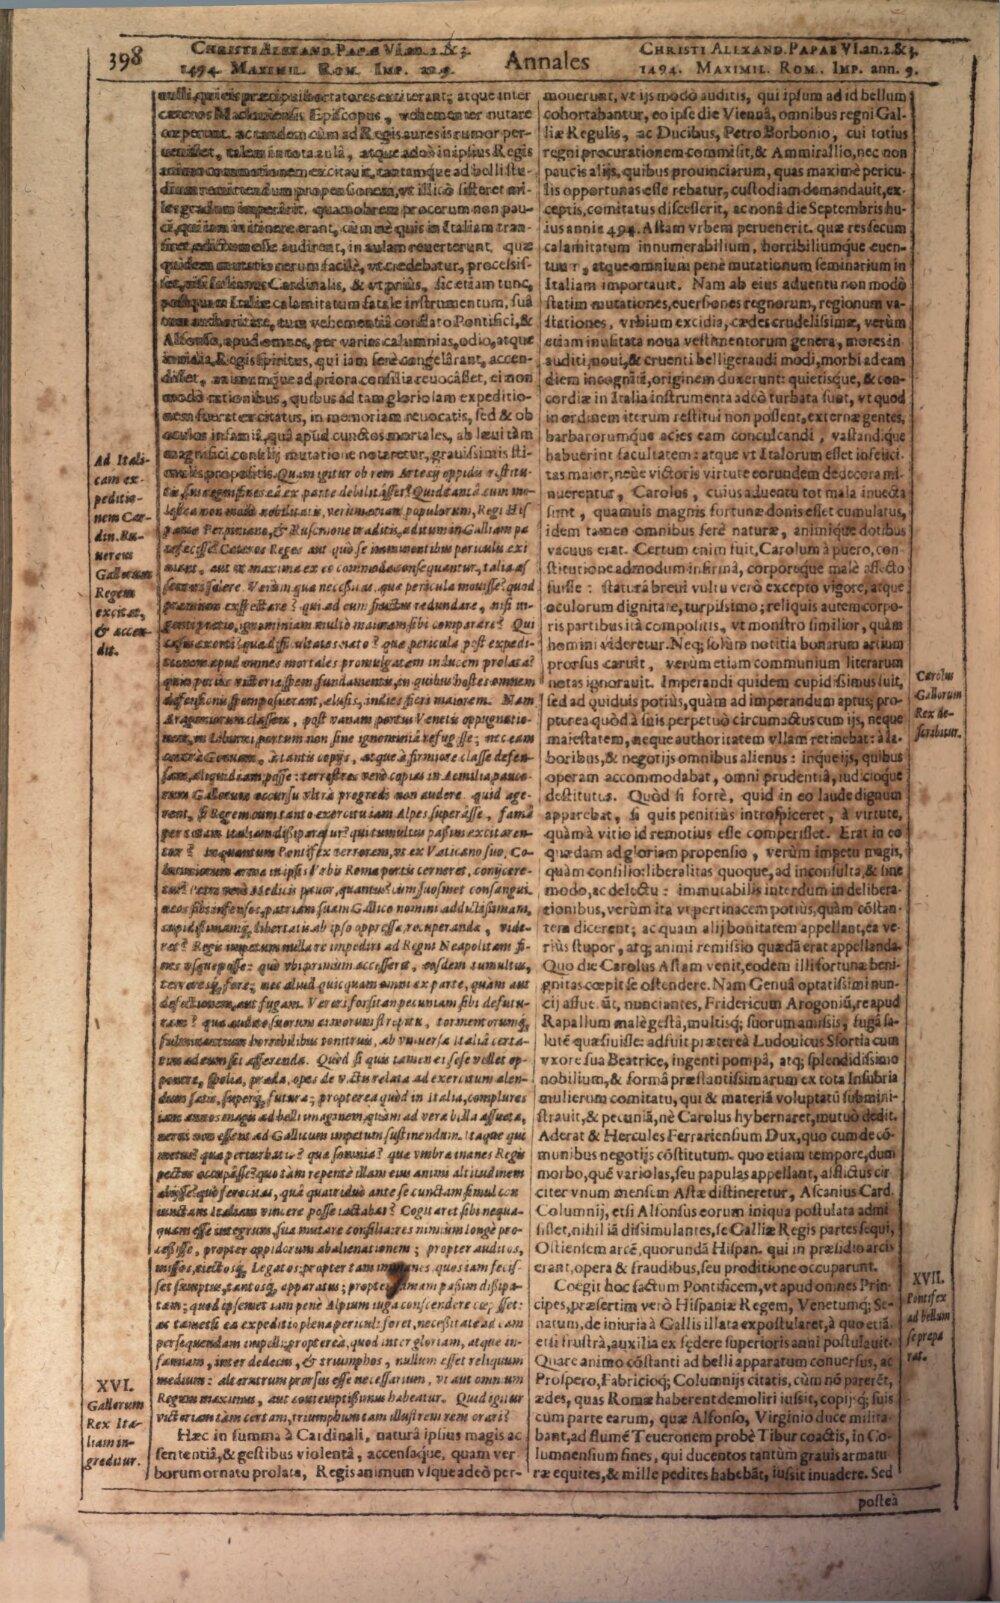 398
CHRISTI ALEXAND. PAPAE VI. an. 2. & 3.
1494. MAXIMIL. ROM. IMP. an. 9.
Annales
CHRISTI ALEXAND. PAPAE VI. an. 2. & 3.
1494. MAXIMIL. ROM. IMP. ann. 9.
atque inter
Episcopus, vehementer nutare
cœperunt. ac tandem cùm ad Regis aures is rumor per-
talem in tota aulâ, atque adeò in ipsius Regis
excitauit, tantamque ad belli stu-
vt illicò sisteret mi-
quamobrem procerum non pau-
ci, qui iam in itinere erant, cùm ne quis in Italiam tran-
audirent, in aulam reuerterent. quæ
quidem facilè, vt credebatur, processis-
Cardinalis, & vt priùs, sic etiam tunc,
Italiæ calamitatum fatale instrumentum, suâ
tum vehementiâ conflato Pontifici, &
Alfonso, apud omnes, per varias calumnias, odio, atque
inuidia, Regis spiritus, qui iam ferè congelârant, accen-
ad priora consilia reuocâsset, ei non
modò rationibus, quibus ad tam gloriosam expeditio-
nem fuerat excitatus, in memoriam reuocatis, sed & ob
oculos infamiâ, quâ apud cunctos mortales, ob leui tàm
magnifici consilij mutatione notaretur, grauissimis sti-
propositis. Quam igitur ob rem Artesij oppidis restitu-
ea ex parte debilitâsset? Quid
nobilitatis, verùm etiam populorum, Regi His
paniæ Perpiniano, & Ruscinone traditis, aditum in Galliam pa
Cæteros Reges aut quò se imminentibus periculis exi
aut ex maxima ex eo commoda consequantur, talia as
solere. Verùm quæ necessitas, quæ pericula mouisse? quod
expectare? qui ad eum fructus redundare, nisi in-
ignominiam multò maiorem sibi comparare? Qui
quæ pericula post expedi-
tionem apud omnes mortales promulgatam in lucem prolata?
fundamentis, in quibus hostes omnem
elusis, indies fieri maiorem. Nam
Aragoniorum classem, post vanam portus Veneris oppugnatio-
nem, in Liburni portum non sine ignominiâ refugisse; nec eam
contrà Genuam, à tantis copijs, atque à firmiore classe defen-
sam, aliquid iam posse: terrestres verò copias in Aemilia pauco-
rum Gallorum occursu vltrà progredi non audere. quid age-
rent, si Regem cum tanto exercitu iam Alpes superâsse, famâ
per totam Italiam dissiparetur? qui tumultus passim excitaren-
tur? In quantum Pontifex terrorem, vt ex Vaticano suo, Co-
lumniorum arma in ipsis Vrbis Romæ portis cerneret, conijcere-
tur? Petri verò Medicis pauor, quantus? cùm suosmet consangui-
neos sibi infensos, patriam suam Gallico nomini addictissimam,
cupidissimamq́; libertatis ab ipso oppressæ, recuperandæ, vide-
ret? Regis impetum nulla re impediri ad Regni Neapolitani fi-
nes vsque posse: quò vbi primùm accesserit, eosdem tumultus,
terroresq́; fore; nec aliud quicquam omni ex parte, quàm aut
defectionem, aut fugam. Vereri forsitan pecuniam sibi defutu-
ram? quæ audito suorum armorum strepitu, tormentorumq́;
fulminantium horribilibus tonitruis, ab vniuersa Italia certa-
tim ad eum sit afferenda. Quòd si quis tamen ei sese vellet op-
ponere, spolia, præda, opes de victis relatæ ad exercitum alen-
dum satis, superq́; futura; propterea quòd in Italia, complures
iam annos magis ad belli imaginem, quàm ad vera bella assueta,
nerui non essent ad Gallicum impetum sustinendum. Itaque qui
metus? quæ perturbatio? quæ somnia? quæ vmbræ inanes Regis
pectus occupâsse? quo tàm repentè illam eius animi altitudinem
abijsse? quò ferocitas, quâ quatriduo ante se cunctam simul con
iunctam Italiam vincere posse iactabat? Cogitaret sibi nequa-
quam esse integrum, sua mutare consilia: res nimium longè pro-
cessisse, propter oppidorum abalienationem; propter auditos,
missos, eiectosq́; Legatos: propter tam immanes, quos iam fecis-
set sumptus, tantosq́; apparatus; propter famam passim dissipa-
tam; quod ipsemet iam penè Alpium iuga conscendere cœpisset:
ac tametsi ea expeditio plena periculi foret, necessitate ad eam
persequendam impelli: propterea, quod inter gloriam, atque in-
famiam, inter dedecus, & triumphos, nullum esset reliquum
medium: alterutrum prorsus esse necessarium, vt aut omnium
Regum maximus, aut contemptissimus habeatur. Quid igitur
victoriam tàm certam, triumphum tam illustrem remorari?
Hæc in summa à Cardinali, naturâ ipsius magis ac
sententiâ, & gestibus violentâ, accensaque, quam ver
borum ornatu prolata, Regis animum vsque adeò per-
Ad Itali-
cam ex-
peditio-
nem Car-
din. Ru-
uereus
Gallorum
Regem
excitat,
& accen-
dit.
XVI.
Gallorum
Rex Ita-
liam in-
greditur.
mouerunt, vt ijs modò auditis, qui ipsum ad id bellum
cohortabantur, eo ipse die Viennâ, omnibus regni Gal-
liæ Regulis, ac Ducibus, Petro Borbonio, cui totius
regni procurationem commisit, & Ammirallio, nec non
paucis alijs, quibus prouinciarum, quas maximè pericu-
lis opportunas esse rebatur, custodiam demandauit, ex-
ceptis, comitatus discesserit, ac nonâ die Septembris hu-
ius anni 1494. Astam vrbem peruenerit. quæ res secum
calamitatum innumerabilium, horribiliumque euen-
tuum, atque omnium penè mutationum seminarium in
Italiam importauit. Nam ab eius aduentu non modò
statim mutationes, euersiones regnorum, regionum va-
stationes, vrbium excidia, cædes crudelissimæ, verùm
etiam inusitata noua vestimentorum genera, mores in-
auditi, noui, & cruenti belligerandi modi, morbi ad eam
diem incogniti, originem duxerunt: quietisque, & con-
cordiæ in Italia instrumenta adeò turbata sunt, vt quòd
in ordinem iterum restitui non possent, externæ gentes,
barbarorumque acies eam conculcandi, vastandique
habuerint facultatem: atque vt Italorum esset infelici-
tas maior, neùe victoris virtute eorundem dedecora mi-
nuerentur, Carolus, cuius aduentu tot mala inuecta
sint, quamuis magnis fortunæ donis esset cumulatus,
idem tamen omnibus ferè naturæ, animique dotibus
vacuus erat. Certum enim fuit, Carolum à puero, con-
stitutione admodum infirmâ, corporeque malè affecto
fuisse: staturâ breui vultu verò excepto vigore, atque
oculorum dignitate, turpissimo; reliquis autem corpo-
ris partibus ità compositis, vt monstro similior, quàm
homini videretur. Neq; solùm notitia bonarum artium
prorsus caruit, verùm etiam communium literarum
notas ignorauit. Imperandi quidem cupidissimus fuit,
sed ad quiduis potiùs, quàm ad imperandum aptus; pro-
pterea quòd à suis perpetuò circumactus cum ijs, neque
maiestatem, neque authoritatem vllam retinebat: à la-
boribus, & negotijs omnibus alienus: inque ijs, quibus
operam accommodabat, omni prudentiâ, iudicioque
destitutus. Quòd si fortè, quid in eo laude dignum
apparebat, si quis penitiùs introspiceret, à virtute,
quàm à vitio id remotius esse comperisset. Erat in eo
quædam ad gloriam propensio, verùm impetu magis,
quàm consilio: liberalitas quoque, ad inconsulta, & sine
modo, ac delectu: immutabilis interdum in delibera-
tionibus, verùm ita vt pertinacem potiùs, quàm cõstan-
tem dicerent; ac quam alij bonitatem appellant, ea ve-
riùs stupor, atq; animi remissio quædã erat appellanda.
Quo die Carolus Astam venit, eodem illi fortunæ beni-
gnitas cœpit se ostendere. Nam Genuâ optatissimi nun-
cij afflue rũt, nunciantes, Fridericum Arogoniũ, re apud
Rapallum malè gestâ, multisq; suorum amissis, fugâ sa-
lutẽ quæsiuisse: adfuit præterea Ludouicus Sfortia cum
vxore sua Beatrice, ingenti pompâ, atq; splendidissimo
nobilium, & formâ præstantissimarum ex tota Insubria
mulierum comitatu, qui & materiã voluptatũ submini-
strauit, & pecuniã, nè Carolus hybernaret, mutuò dedit.
Aderat & Hercules Ferrariensium Dux, quo cum de cõ-
munibus negotijs cõstitutum. quo etiam tempore, dum
morbo, quẽ variolas, seu papulas appellant, afflictus cir
citer vnum mensem Astæ distineretur, Ascanius Card.
Columnij, etsi Alfonsus eorum iniqua postulata admi
sisset, nihil iã dissimulantes, se Galliæ Regis partes sequi,
Ostiensem arcẽ, quorundã Hispan. qui in præsidio arcis
erant, opera & fraudibus, seu proditione occuparunt.
Coëgit hoc factum Pontificem, vt apud omnes Prin-
cipes, præsertim verò Hispaniæ Regem, Venetumq; Se-
natum, de iniuria à Gallis illata expostularet, à quo etiã,
etsi frustrà, auxilia ex fœdere superioris anni postulauit.
Quare animo cõstanti ad belli apparatum conuersus, ac
Prospero, Fabricioq; Columnijs citatis, cùm nõ parerẽt,
ædes, quas Romæ haberent demoliri iussit, copijsq; suis
cum parte earum, quæ Alfonso, Virginio duce milita-
bant, ad flumẽ Teueronem probè Tibur coactis, in Co-
lumnensium fines, qui ducentos tantùm grauis armatu-
ræ equites, & mille pedites habebãt, iussit inuadere. Sed
Carolus
Gallorum
Rex de-
scribitur.
XVII.
Pontifex
ad bellum
se præpa
rat.
posteà